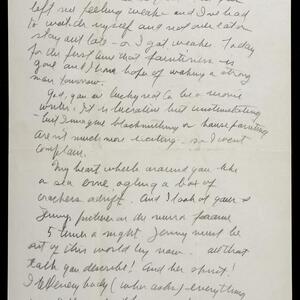 left me feeling weak - and I've had
to watch myself and not over eat or
stay out late - or I get weaker. Today
for the first time that faintiness is
gone and I have hopes of waking a strong
man tomorrow.
God, you are lucky not to be a movie
writer. It is lucrative but unstimulating
- but I imagine blacksmithing or house painting
aren't much more exciting - so I won't
complain.
My heart wheels around you like
a sea crow ogling a box of
crackers adrift. And I look at yours &
Jenny's pictures in the mirror frame
5 times a night. Jenny must be
out of this world by now. All that
talk you described! And her spirit!
I tell everybody (who asks) everything